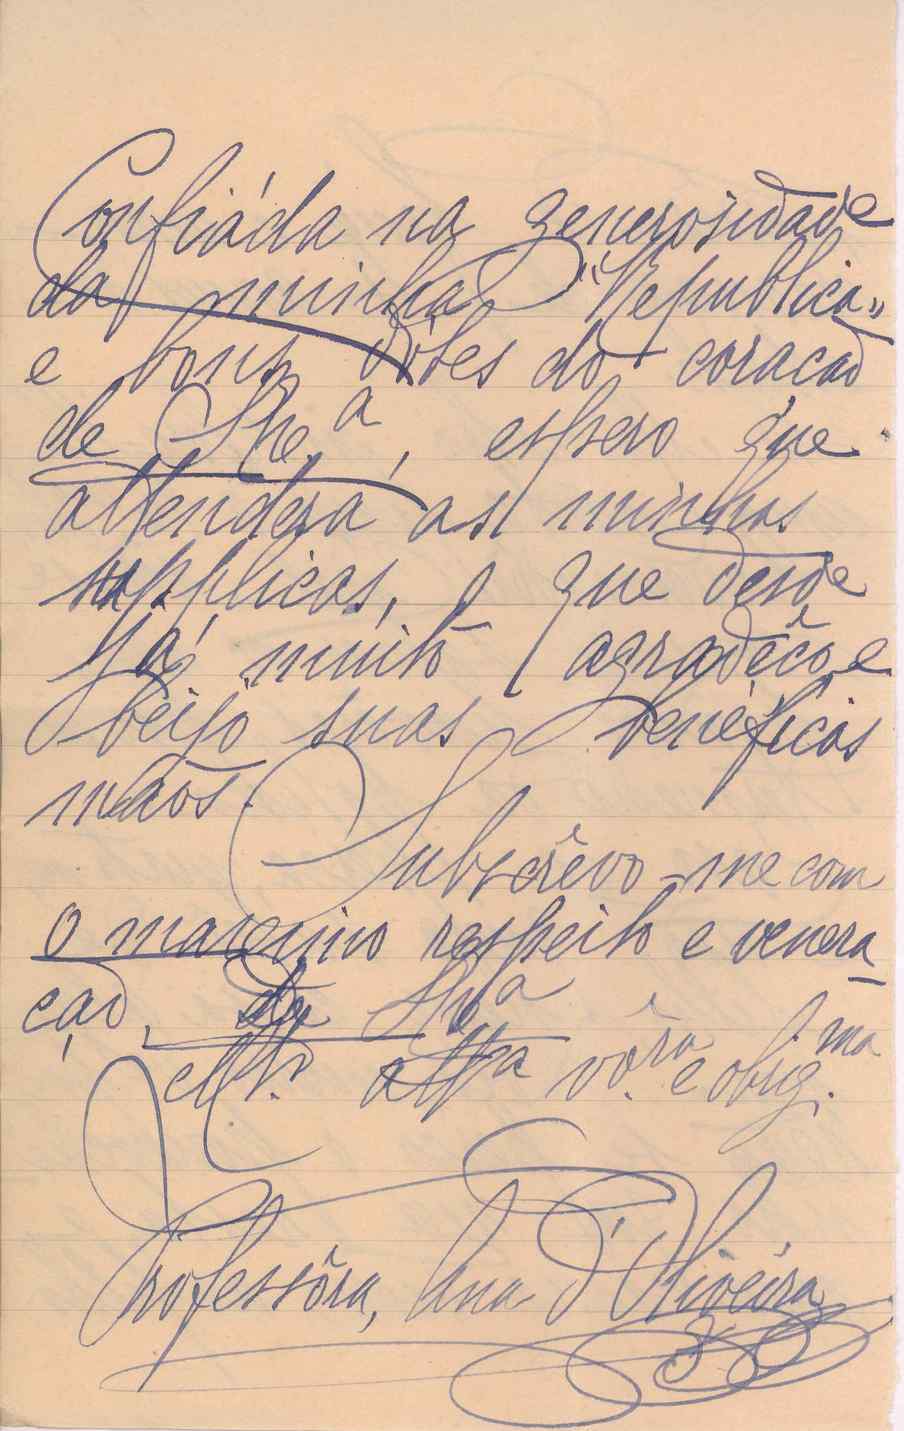 Confiáda na generosidade
da minha "Republica"
e bons dótes do coracaõ
de Sñe.ª, espero que
attenderá as minhas
supplicas, o que desde
já muito agradêço, e
beijo suas benéficas
mãos.
Subscrêvo-me com
o maximo respeito e venera-
çaõ,
attª vôra. e obrig.ma
Professôra, Ana d'Oliveira